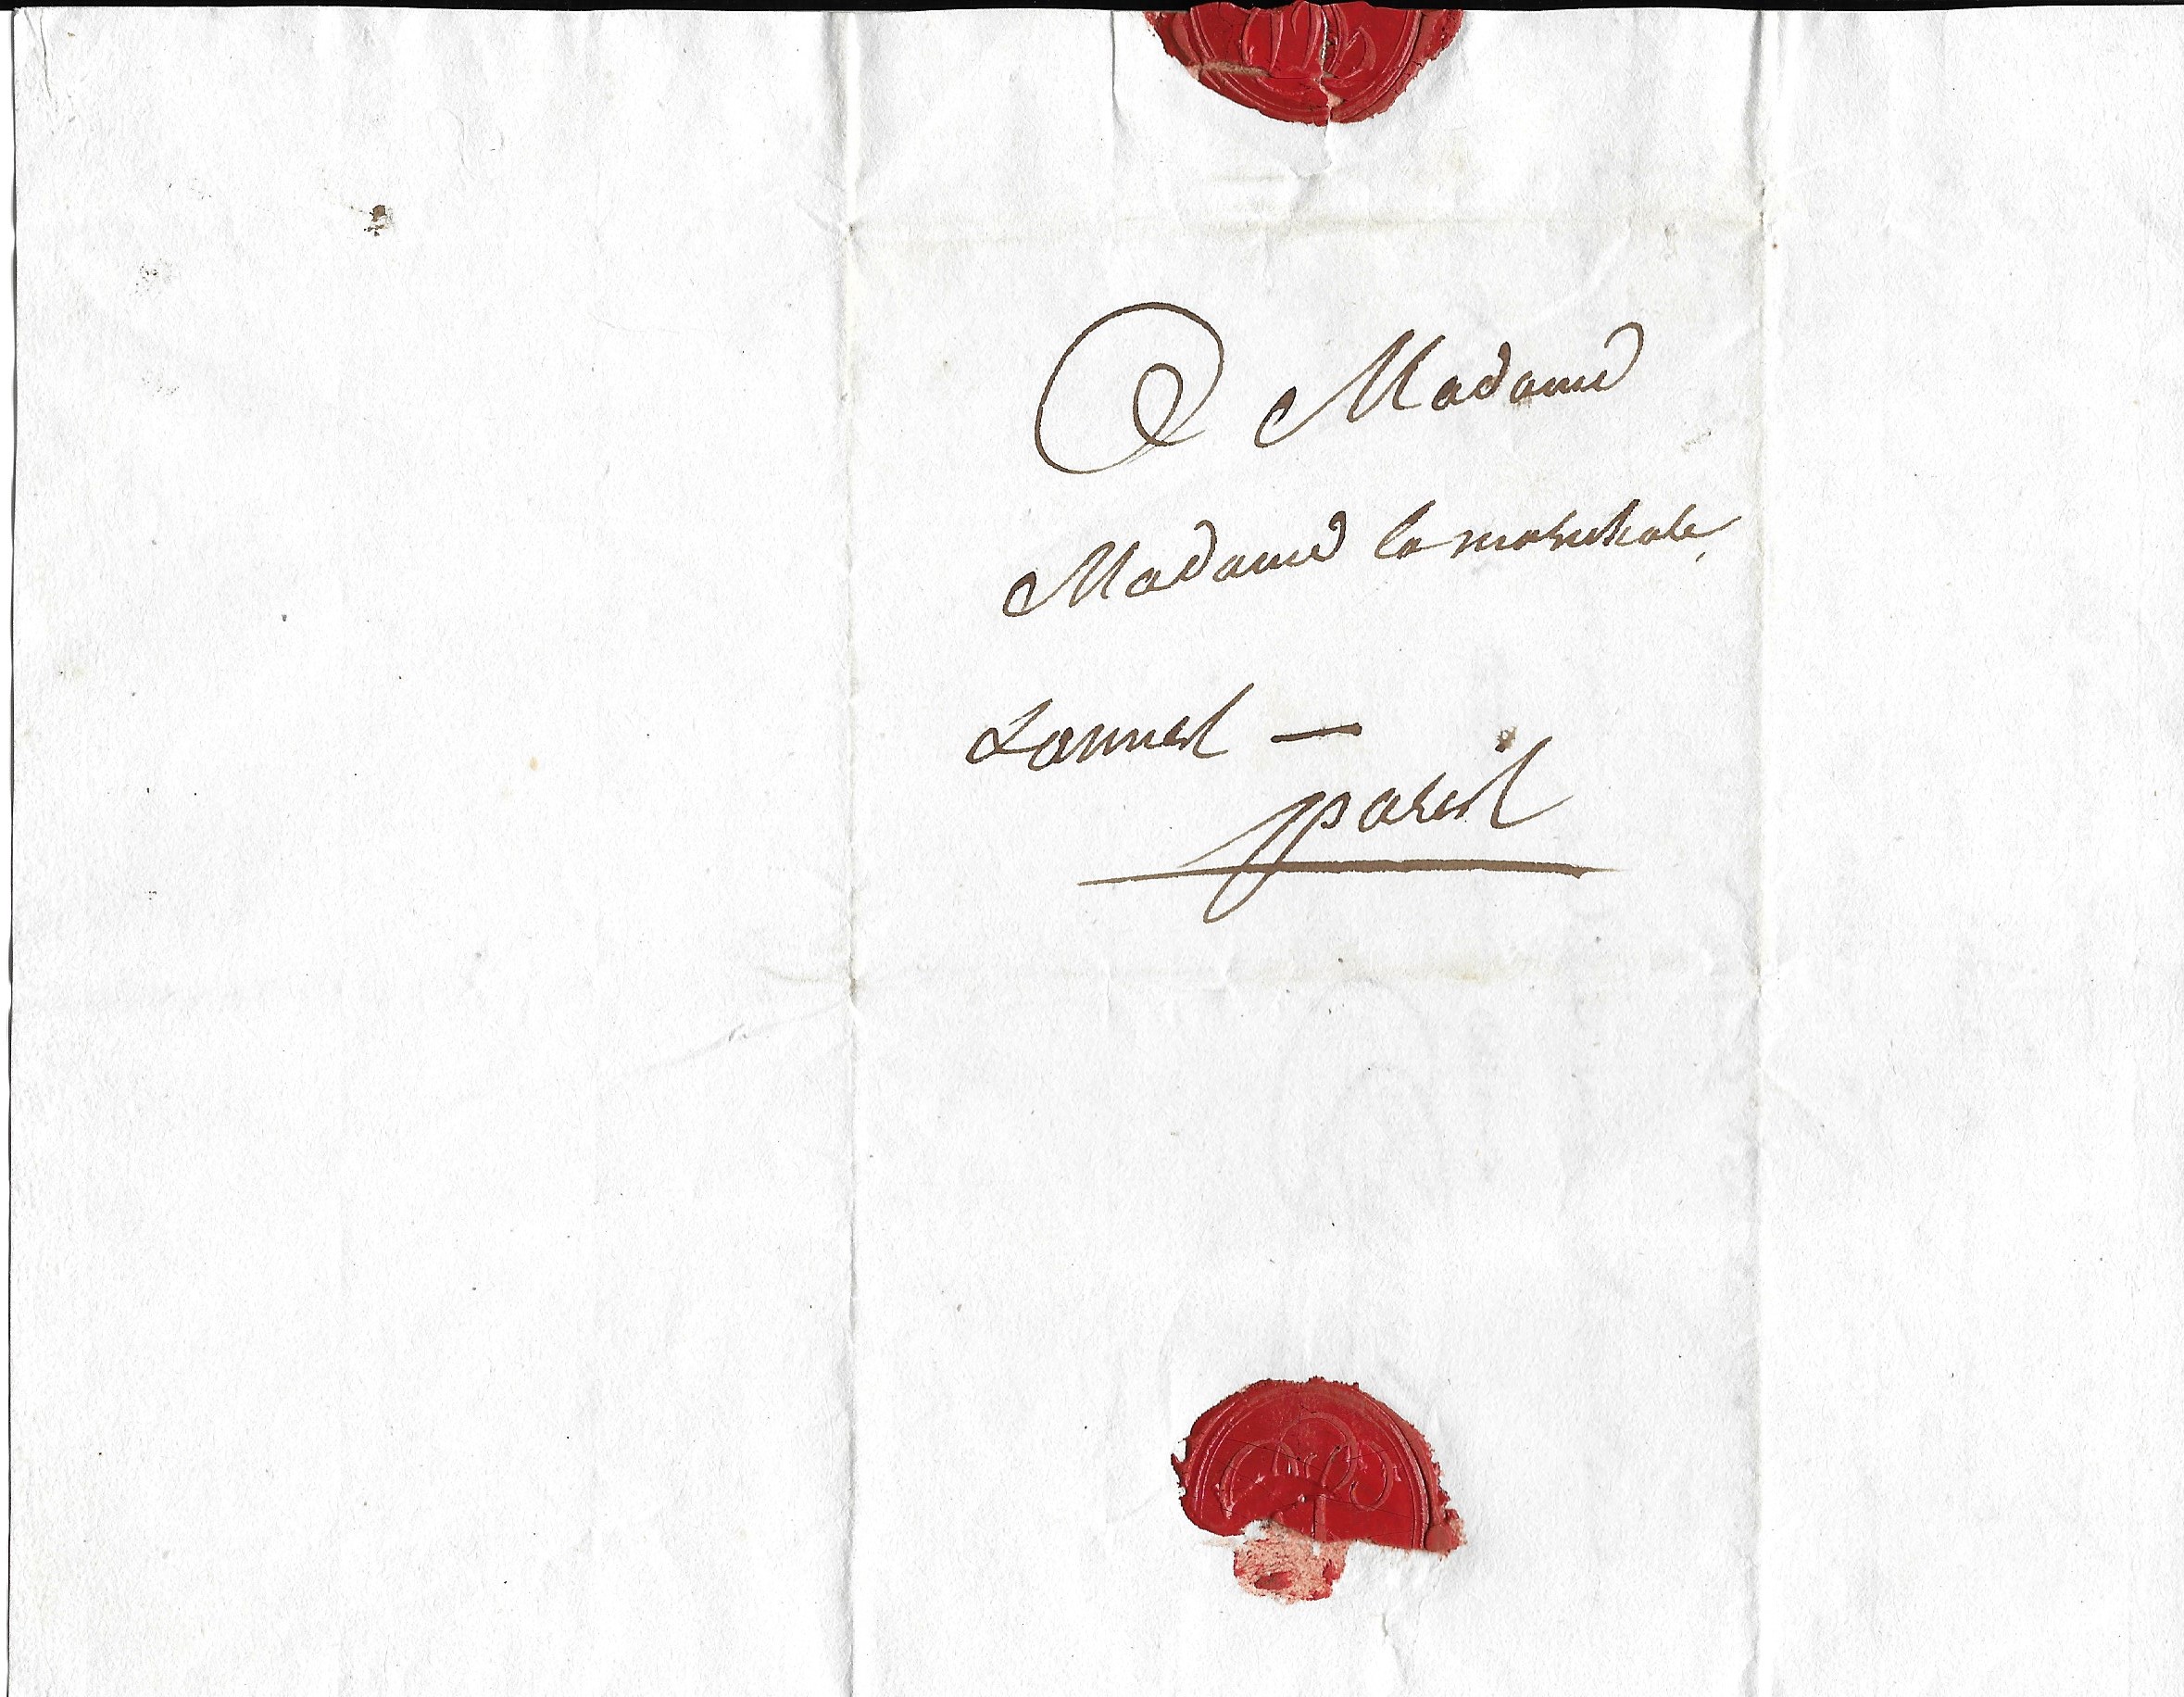 A Madame
Madame la marechale
Lannes —
paris